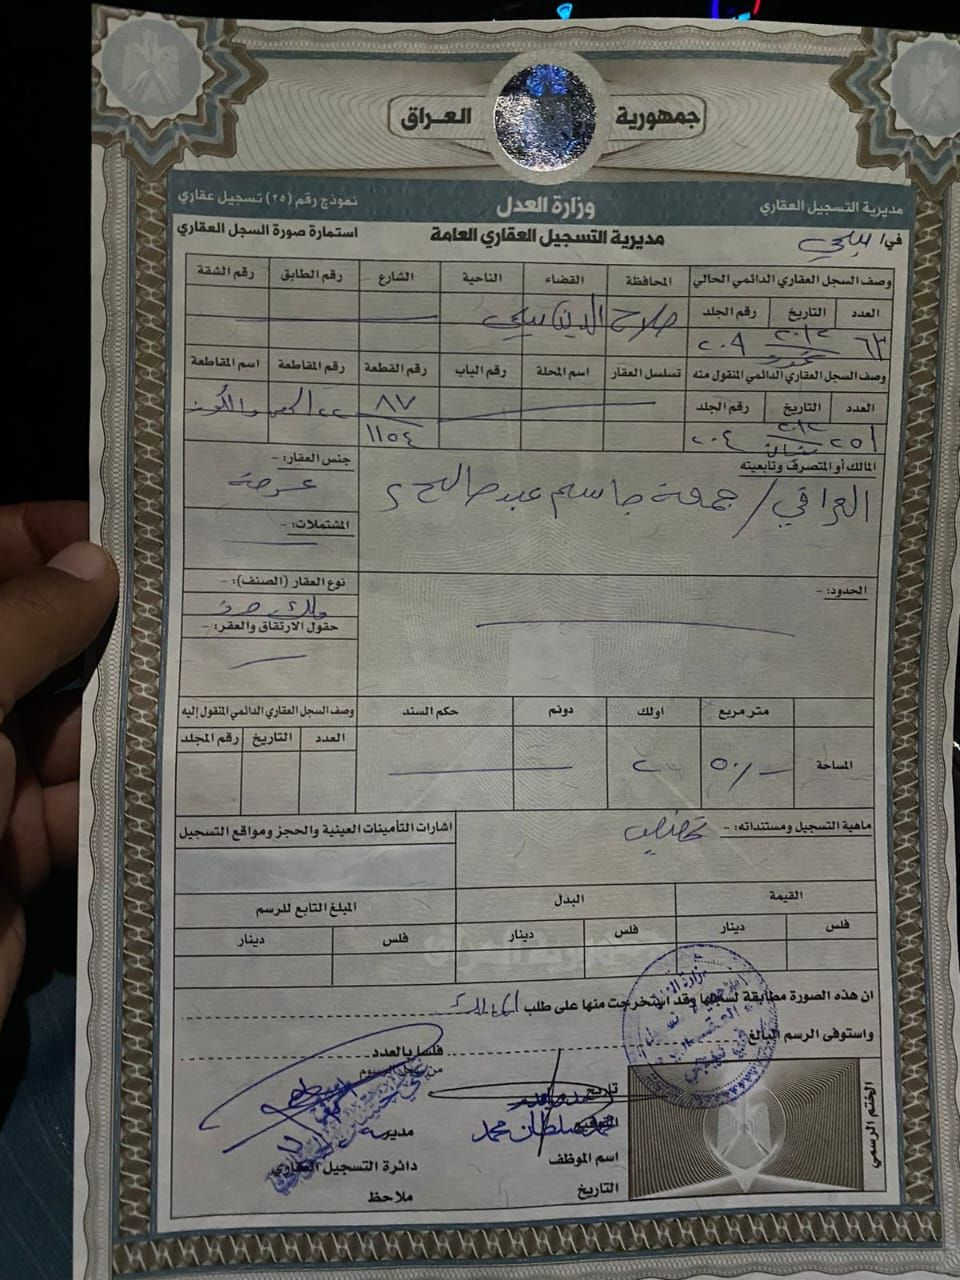 جمهورية العراق
وزارة العدل
مديرية التسجيل العقاري
نموذج رقم (٢٥) تسجيل عقاري
في/ بيجي
مديرية التسجيل العقاري العامة
استمارة صورة السجل العقاري
وصف السجل العقاري الدائمي الحالي
المحافظة القضاء الناحية الشارع رقم الطابق رقم الشقة
العدد التاريخ رقم الجلد
صلاح الدين بيجي
٦٣ ٢٠١٢ ٢٠٩
تموز
وصف السجل العقاري الدائمي المنقول منه
تسلسل العقار اسم المحلة رقم الباب رقم القطعة رقم المقاطعة اسم المقاطعة
العدد التاريخ رقم الجلد
٨٧ ٢٢
١١٥٤
٢٥١ ٢٠١٢ ٢٠٤
المالك أو المتصرف وتابعيته
العراقي / جمعة جاسم عبد صالح
جنس العقار: -
عرصة
المشتملات: -
نوع العقار (الصنف): -
ملك صرف
حقول الارتفاق والعقر: -
الحدود: -
متر مربع اولك دونم حكم السند
وصف السجل العقاري الدائمي المنقول إليه
العدد التاريخ رقم المجلد
المساحة
٥٠/٠٠ ٢
ماهية التسجيل ومستنداته: -
اشارات التأمينات العينية والحجز ومواقع التسجيل
القيمة البدل المبلغ التابع للرسم
فلس دينار فلس دينار فلس دينار
ان هذه الصورة مطابقة لسجلها وقد استخرجت منها على طلب المالك
واستوفى الرسم البالغ
فلسا بالعدد
تاريخ
محمد سلطان محمد
اسم الموظف
التاريخ
مدير
دائرة التسجيل العقاري
ملاحظ
الختم الرسمي